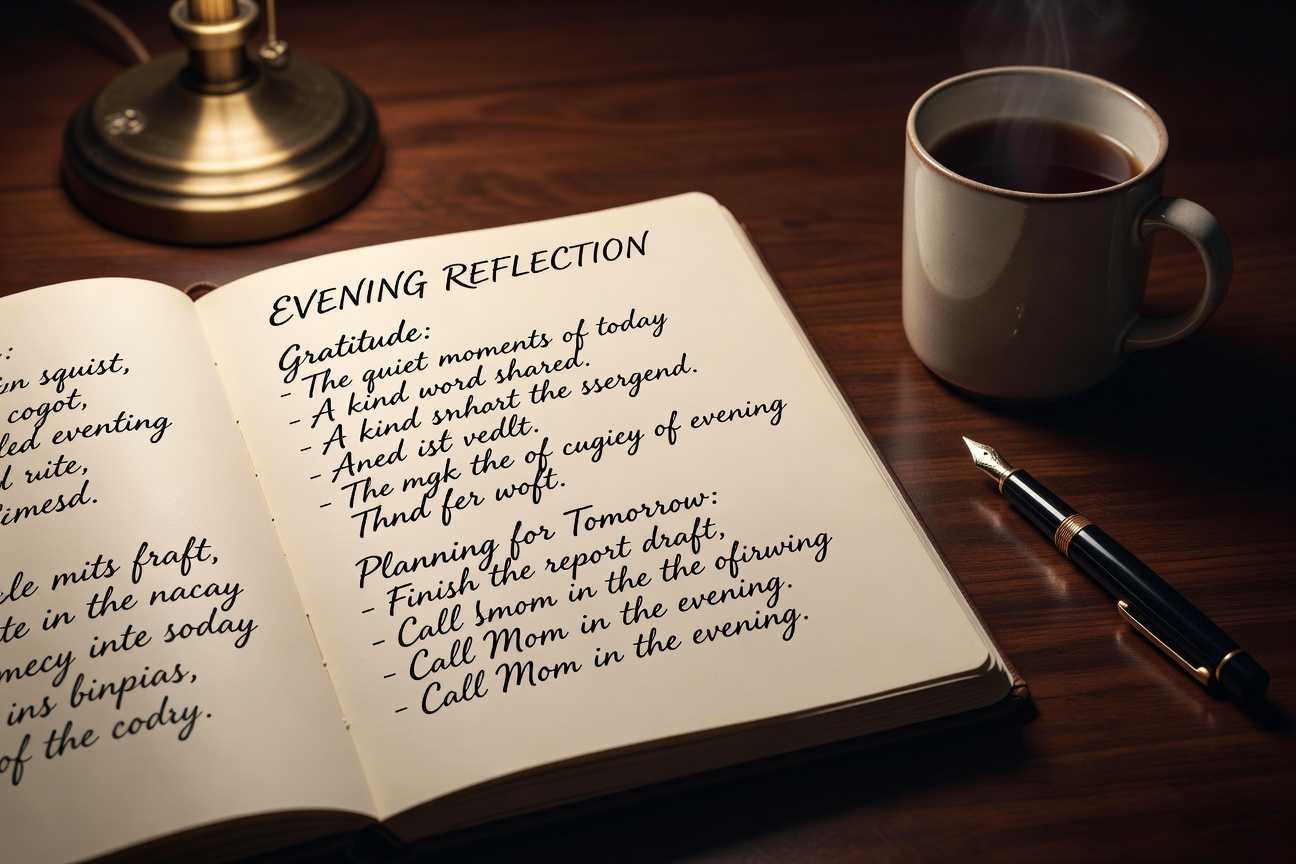 :
squist,
cogot,
led eventing
d rute,
imesd.
le mits fraft,
te in the nacay
mecy inte soday
ins binpias,
of the codry.
EVENING REFLECTION
Gratitude:
- The quiet moments of today
- A kind word shared.
- A kind snhart the ssergend.
- Aned ist vedlt.
- The mgk the of cugiey of evening
Thnd fer woft.
Planning for Tomorrow:
- Finish the report draft,
- Call Smom in the the ofirwing
- Call Mom in the evening.
- Call Mom in the evening.